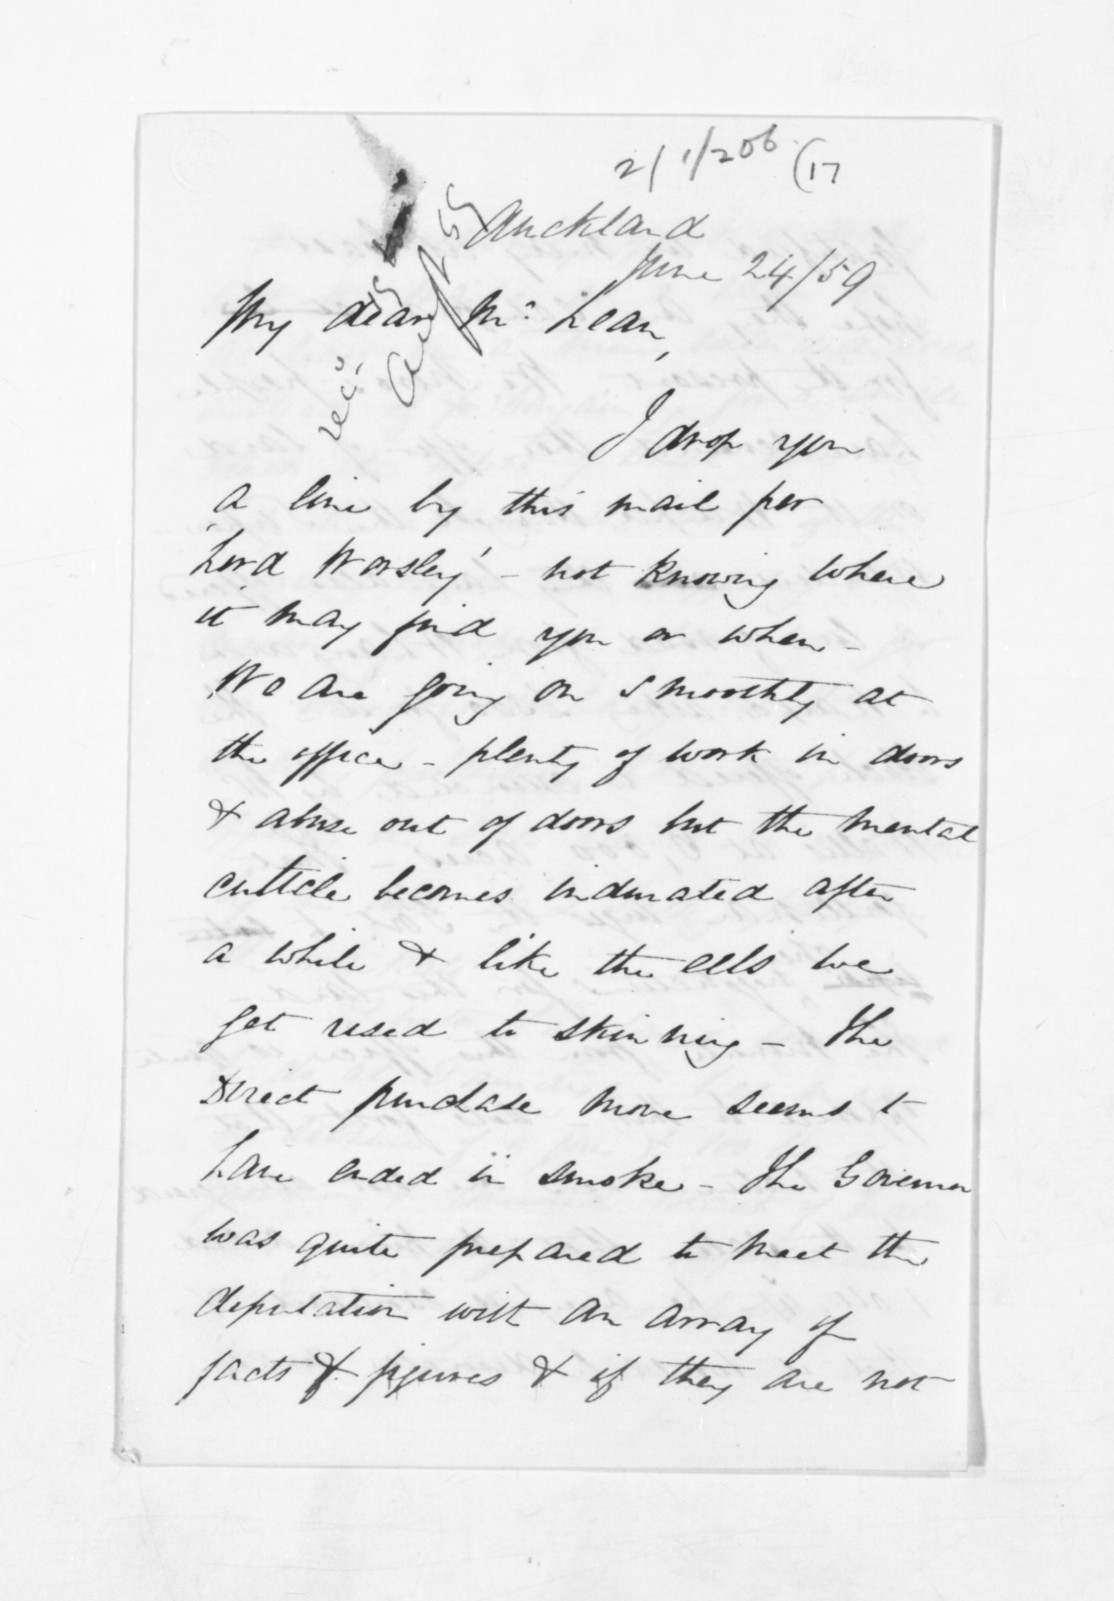 2/1/206 (17
Auckland
June 24/59
My dear Mc Lean,
recd.
I drop you
a line by this mail per
'Lord Worsley' - not knowing where
it may find you or when -
We are going on smoothly at
the office - plenty of work in doors
& abuse out of doors but the mental
cuticle becomes indurated after
a while & like the eels we
get used to skinning - The
Direct purchase move seems to
have ended in smoke - The Governor
was quite prepared to meet the
deputation with an array of
facts & figures & if they are not